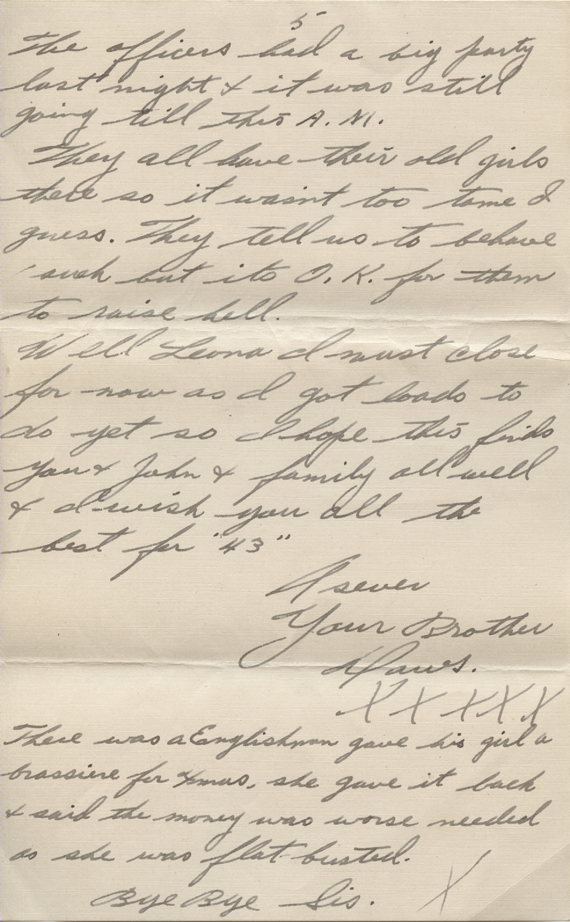 5
The officers had a big party
last night & it was still
going till this A.M.
They all have their old girls
there so it wasn't too tame I
guess. They tell us to behave
& such but its O.K. for them
to raise hell.
Well Leona I must close
for now as I got loads to
do yet so I hope this finds
you & John & family all well
& I wish you all the
best for "43"
As ever
Your Brother
Daws.
X X X X X
There was a Englishman gave his girl a
brassiere for Xmas, she gave it back
& said the money was worse needed
as she was flat busted.
Bye Bye Sis. X